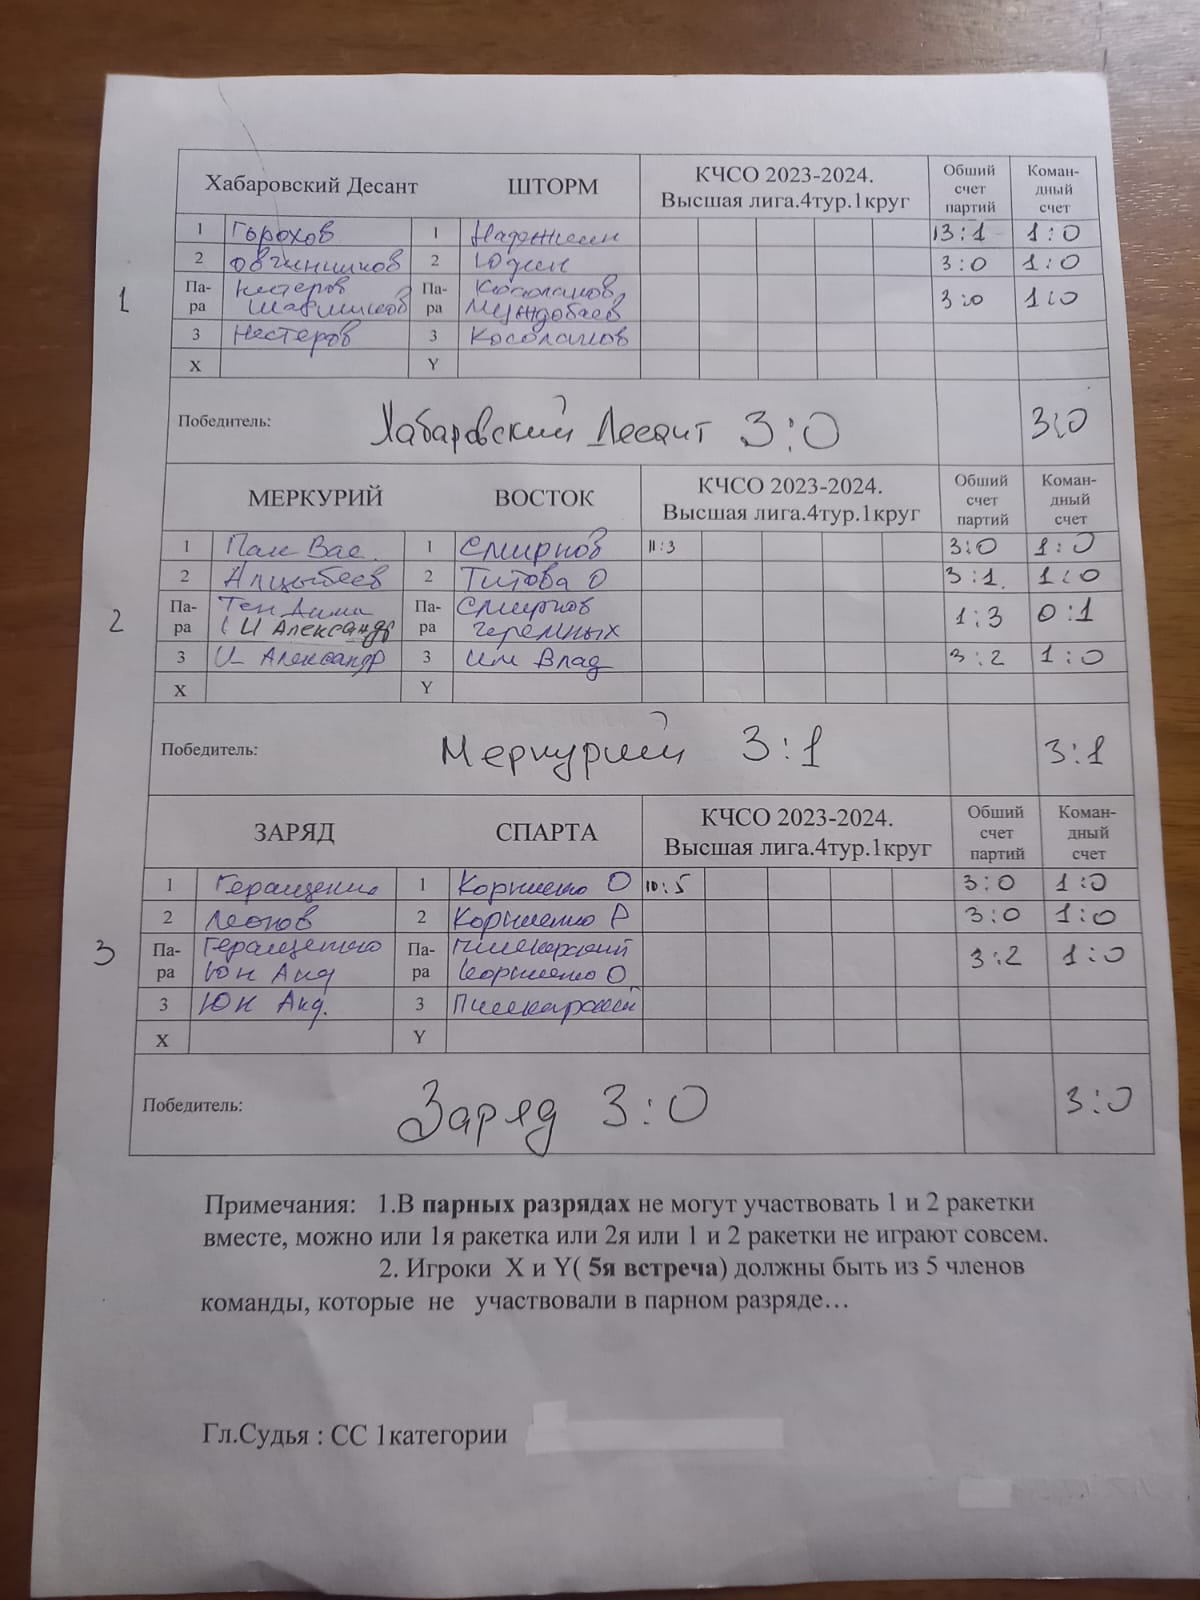 Хабаровский Десант ШТОРМ КЧСО 2023-2024. Высшая лига.4тур.1круг Обший счет партий Коман-дный счет
1 Горохов 1 13:1 1:0
2 Овчинников 2 Юдин 3:0 1:0
1
Па-ра Нестеров Па-ра 3:0 1:0
3 Нестеров 3 Косолапов
X Y
Победитель: Хабаровский Десант 3:0 3:0
МЕРКУРИЙ ВОСТОК КЧСО 2023-2024. Высшая лига.4тур.1круг Обший счет партий Коман-дный счет
1 Пак Вас. 1 Смирнов 11:3 3:0 1:0
2 Алцыбеев 2 Титова О 3:1. 1:0
2
Па-ра Тен Дима Па-ра Смирнов 1:3 0:1
( И Александр Черемных
3 И Александр 3 Им Влад 3:2 1:0
X Y
Победитель: Меркурий 3:1 3:1
ЗАРЯД СПАРТА КЧСО 2023-2024. Высшая лига.4тур.1круг Обший счет партий Коман-дный счет
1 Геращенко 1 Корниенко О 10:5 3:0 1:0
2 Леонов 2 Корниенко Р 3:0 1:0
3
Па-ра Геращенко Па-ра 3:2 1:0
Юн Анд Корниенко О
3 Юн Анд. 3
X Y
Победитель: Заряд 3:0 3:0
Примечания: 1.В парных разрядах не могут участвовать 1 и 2 ракетки
вместе, можно или 1я ракетка или 2я или 1 и 2 ракетки не играют совсем.
2. Игроки X и Y( 5я встреча) должны быть из 5 членов
команды, которые не участвовали в парном разряде…
Гл.Судья : СС 1категории